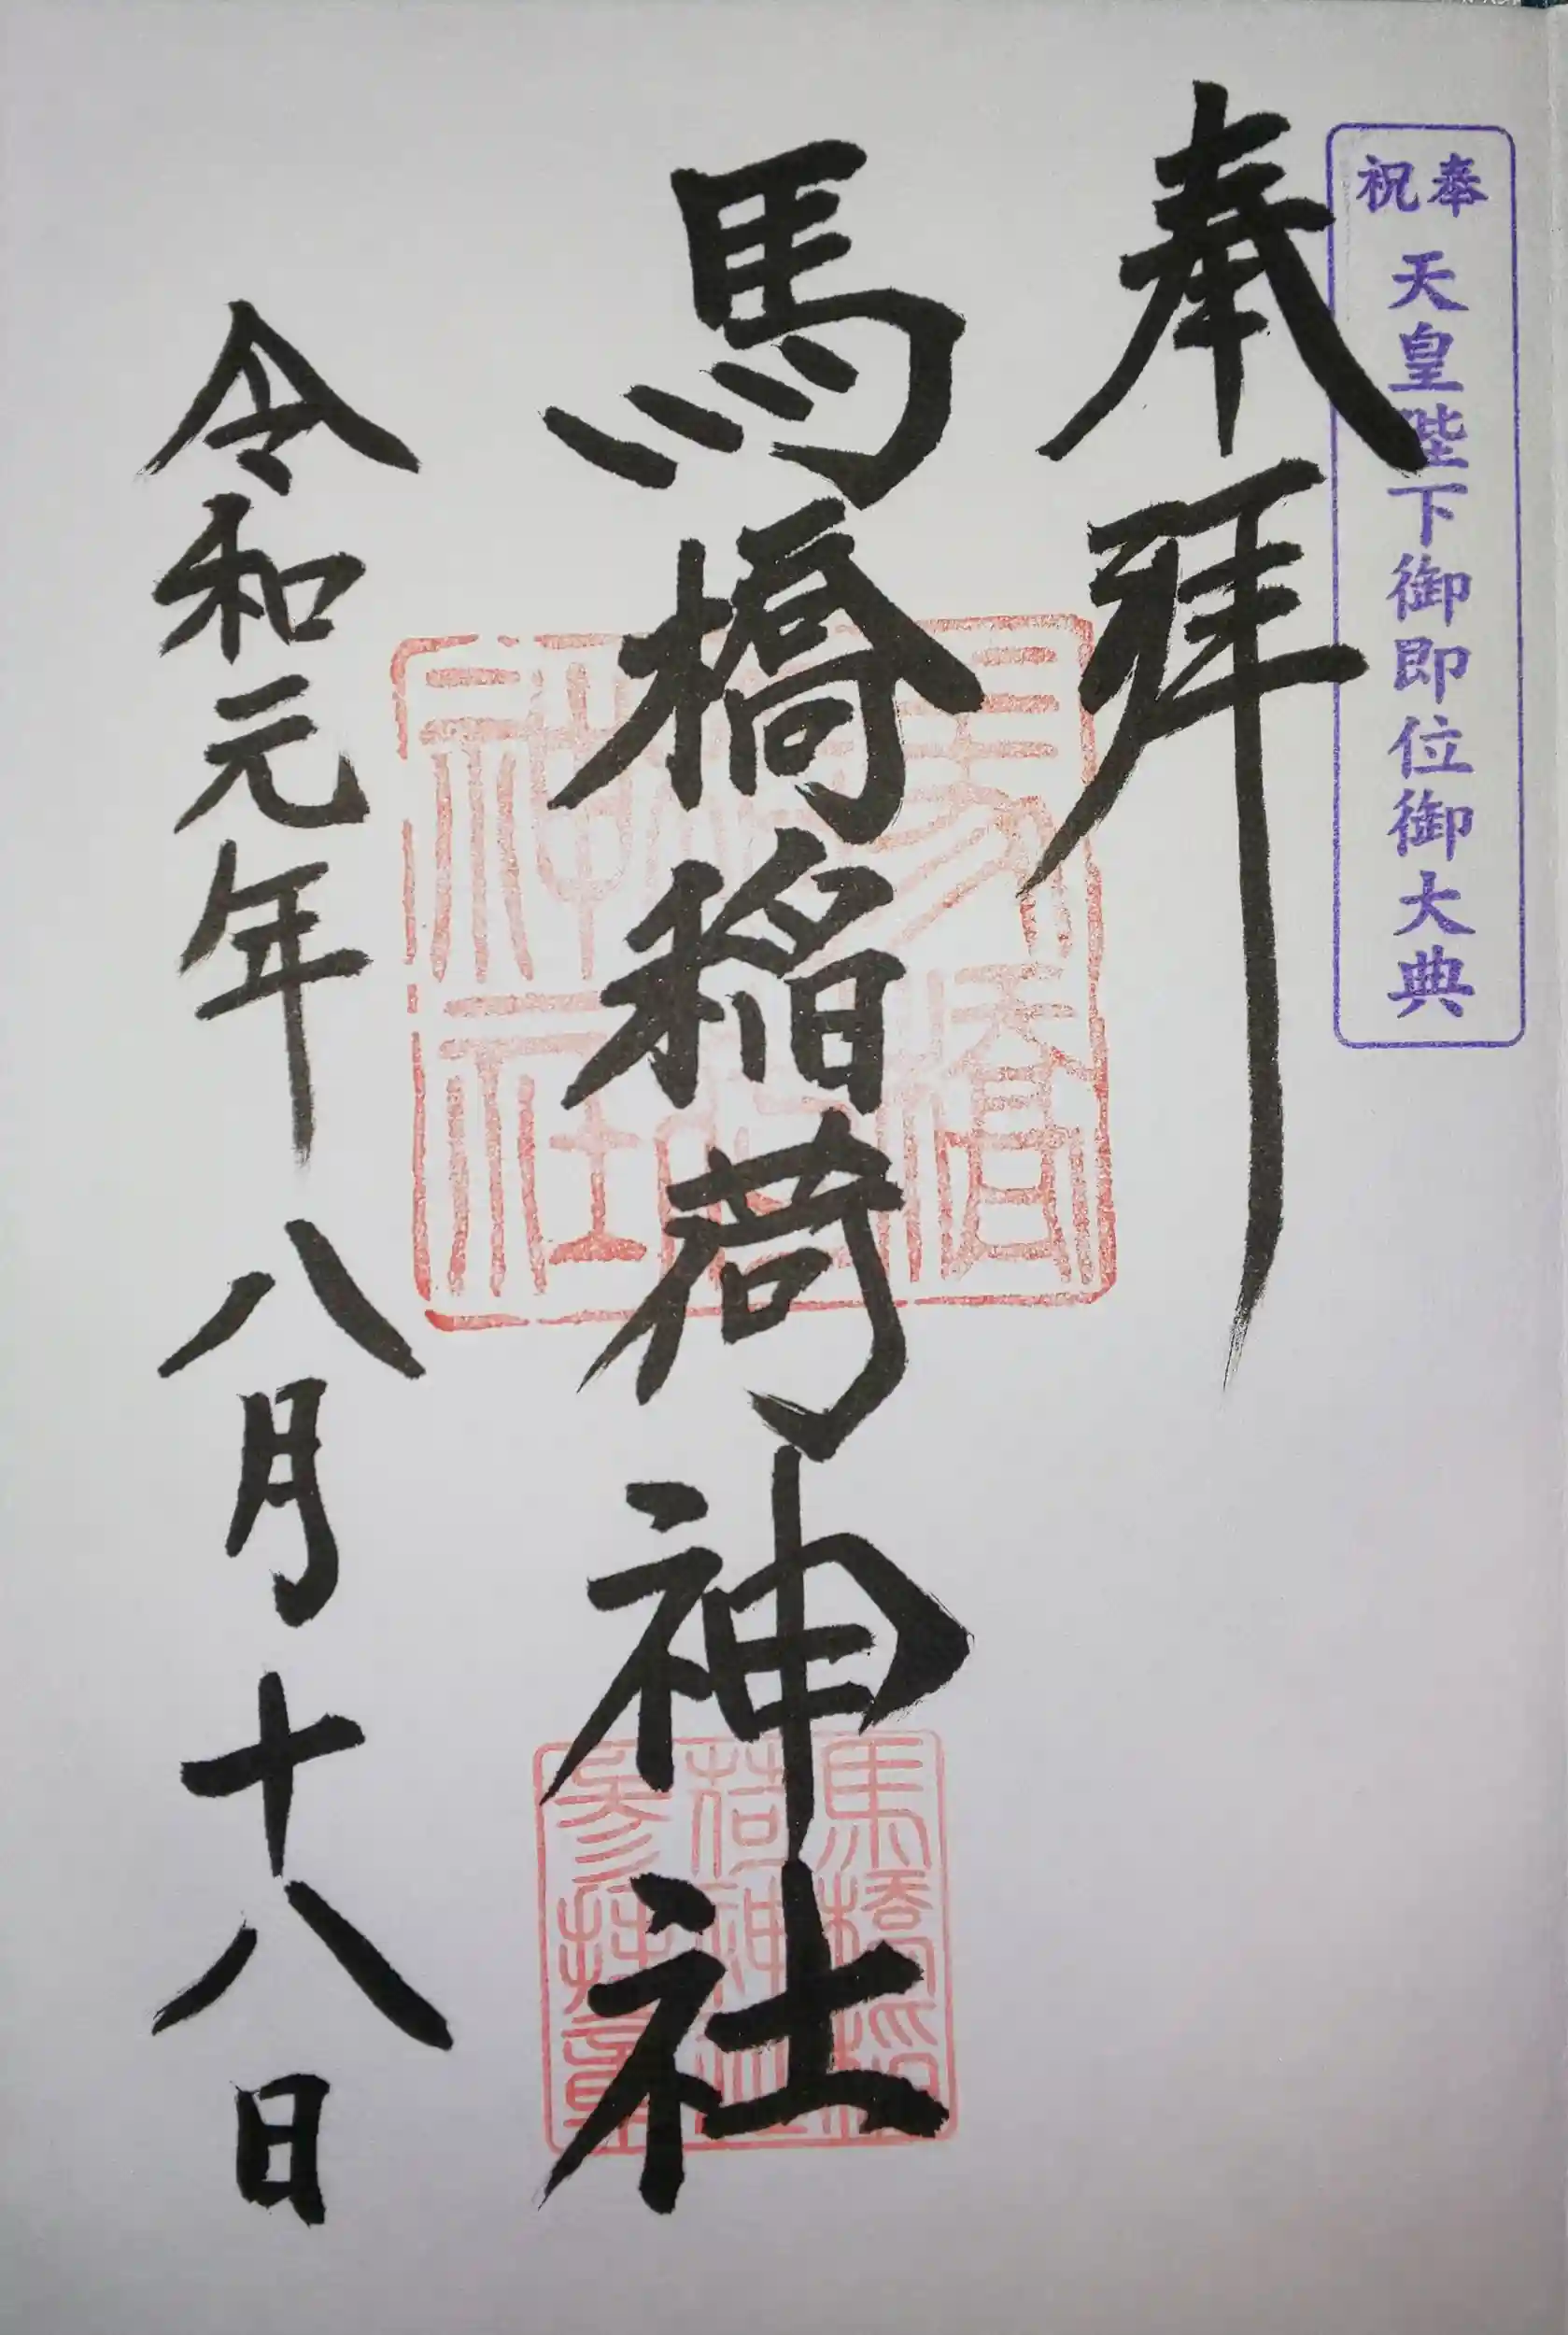 奉祝
天皇陛下御即位御大典
奉拝
馬橋稲荷神社
令和元年八月十八日
馬橋稲
荷神社
参拝章